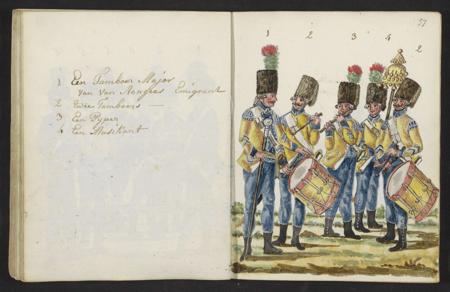 1 Een Tamboer Major
van van Aengres Emigrant
2 Twee Tamboers —
3 Een Pyper
4 Een Musikant
57
1 2 3 4 2